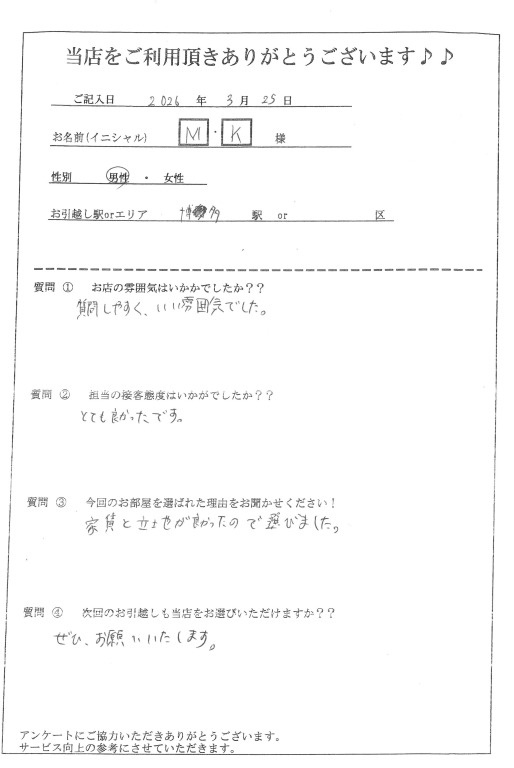 当店をご利用頂きありがとうございます♪♪
ご記入日 2026 年 3 月 25 日
お名前(イニシャル) M・K 様
性別 男性 ・ 女性
お引越し駅orエリア 博多 駅 or 区
質問 ① お店の雰囲気はいかかでしたか??
質問しやすく、いい雰囲気でした。
質問 ② 担当の接客態度はいかがでしたか??
とても良かったです。
質問 ③ 今回のお部屋を選ばれた理由をお聞かせください!
家賃と立地が良かったので選びました。
質問 ④ 次回のお引越しも当店をお選びいただけますか??
ぜひ、お願いいたします。
アンケートにご協力いただきありがとうございます。
サービス向上の参考にさせていただきます。